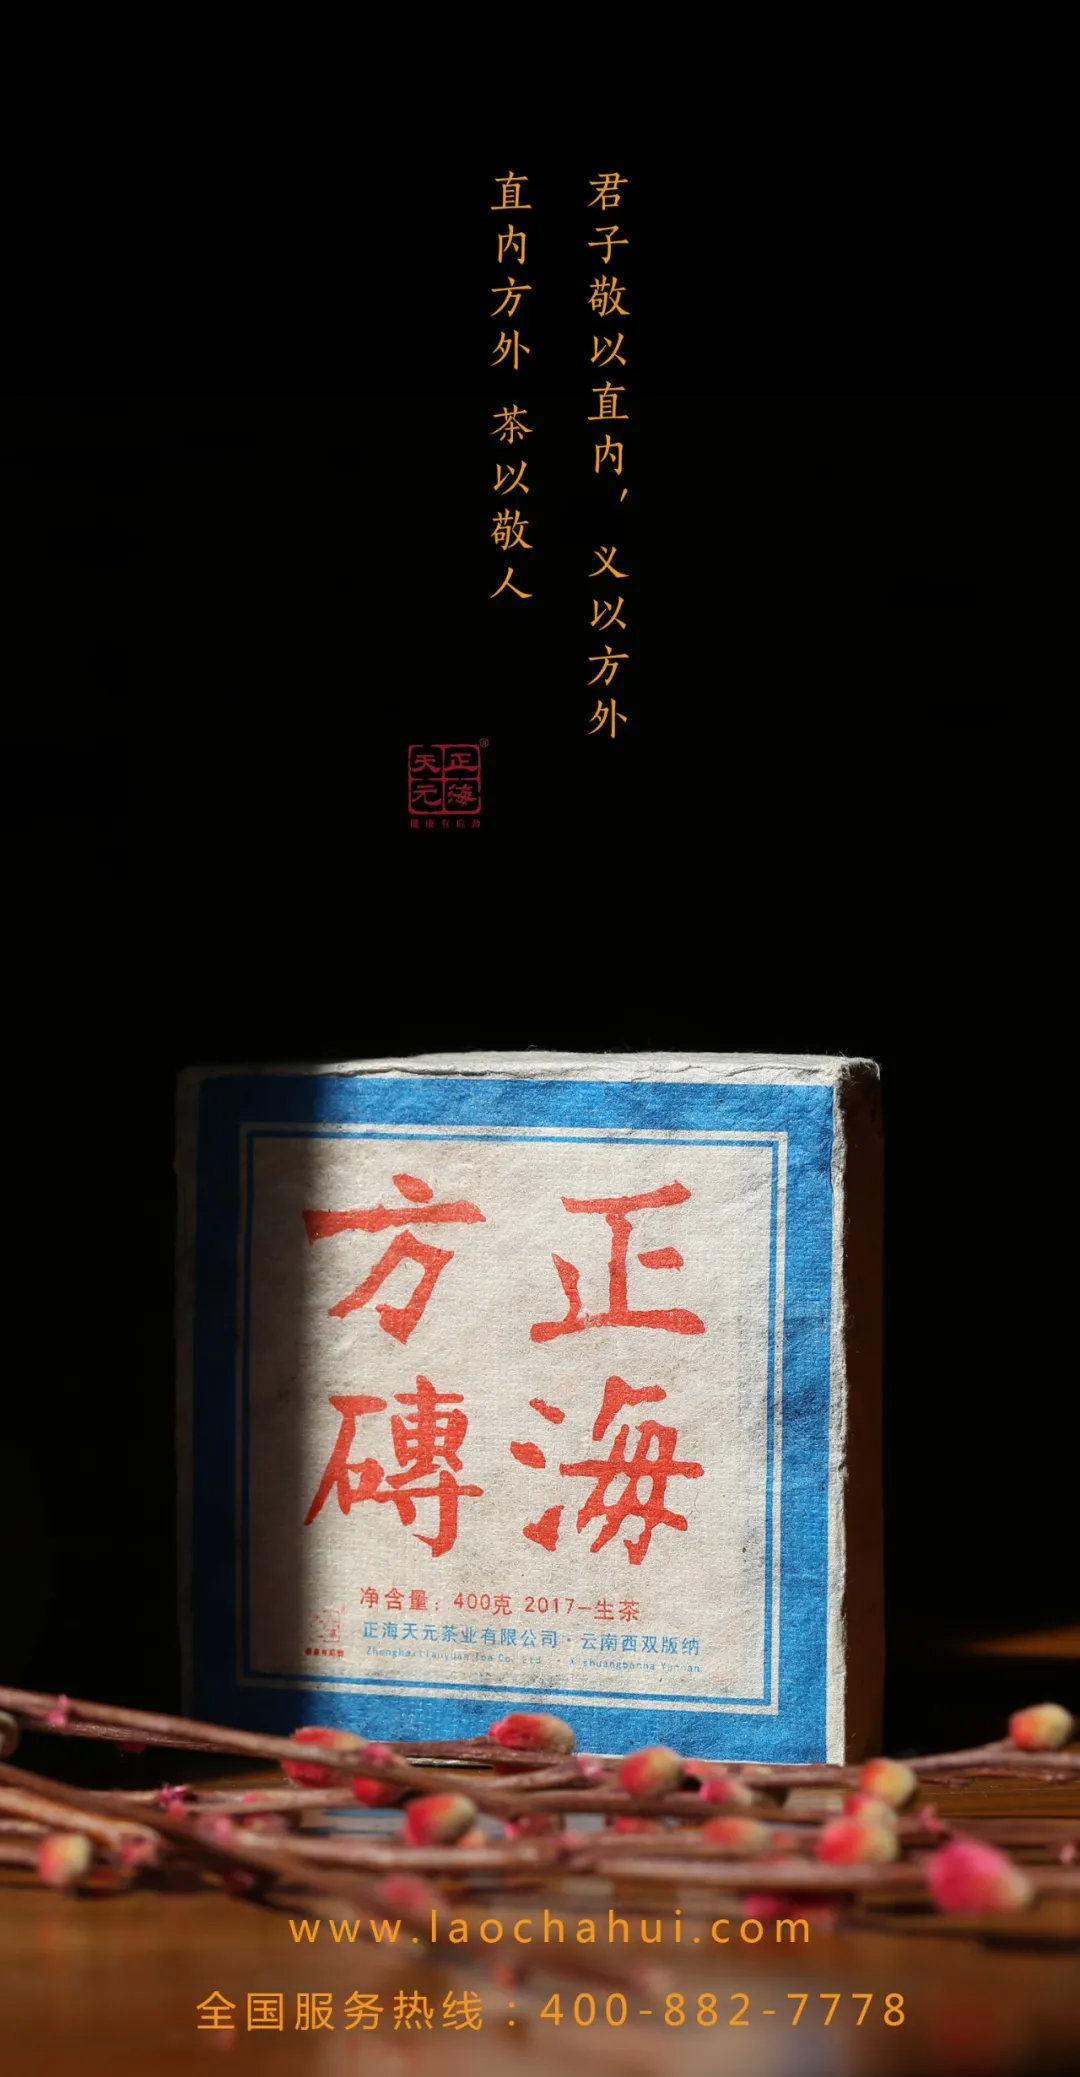 君子敬以直内，义以方外
直内方外 茶以敬人
正海
天元
®
健康有后劲
正海
方磚
净含量：400克 2017-生茶
正海天元茶业有限公司·云南西双版纳
www.laochahui.com
全国服务热线：400-882-7778